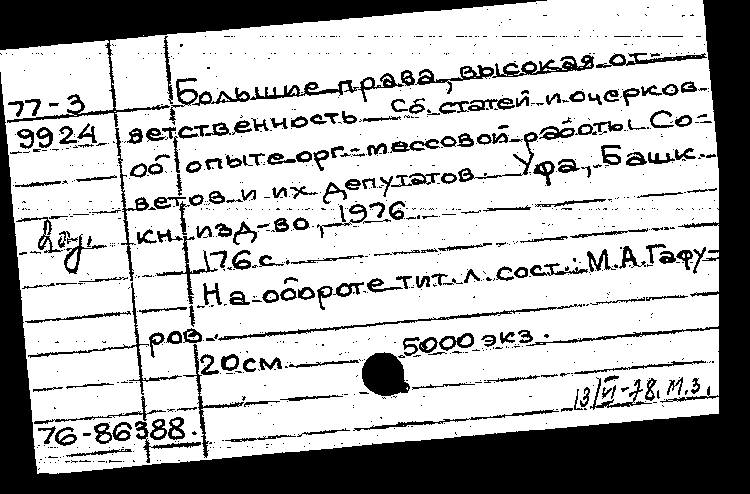 77-3
9924
Большие права, высокая от-
ветственность Сб. статей и очерков
об опыте орг.-мессовой работы Со-
ветов и их депутатов. Уфа, Башк.
кн. изд-во, 1976
176 с.
На обороте тит. л. сост.: М.А.Гафу=
ров.
20см 5000 экз.
13/VI-78. М.З.
76-86388.